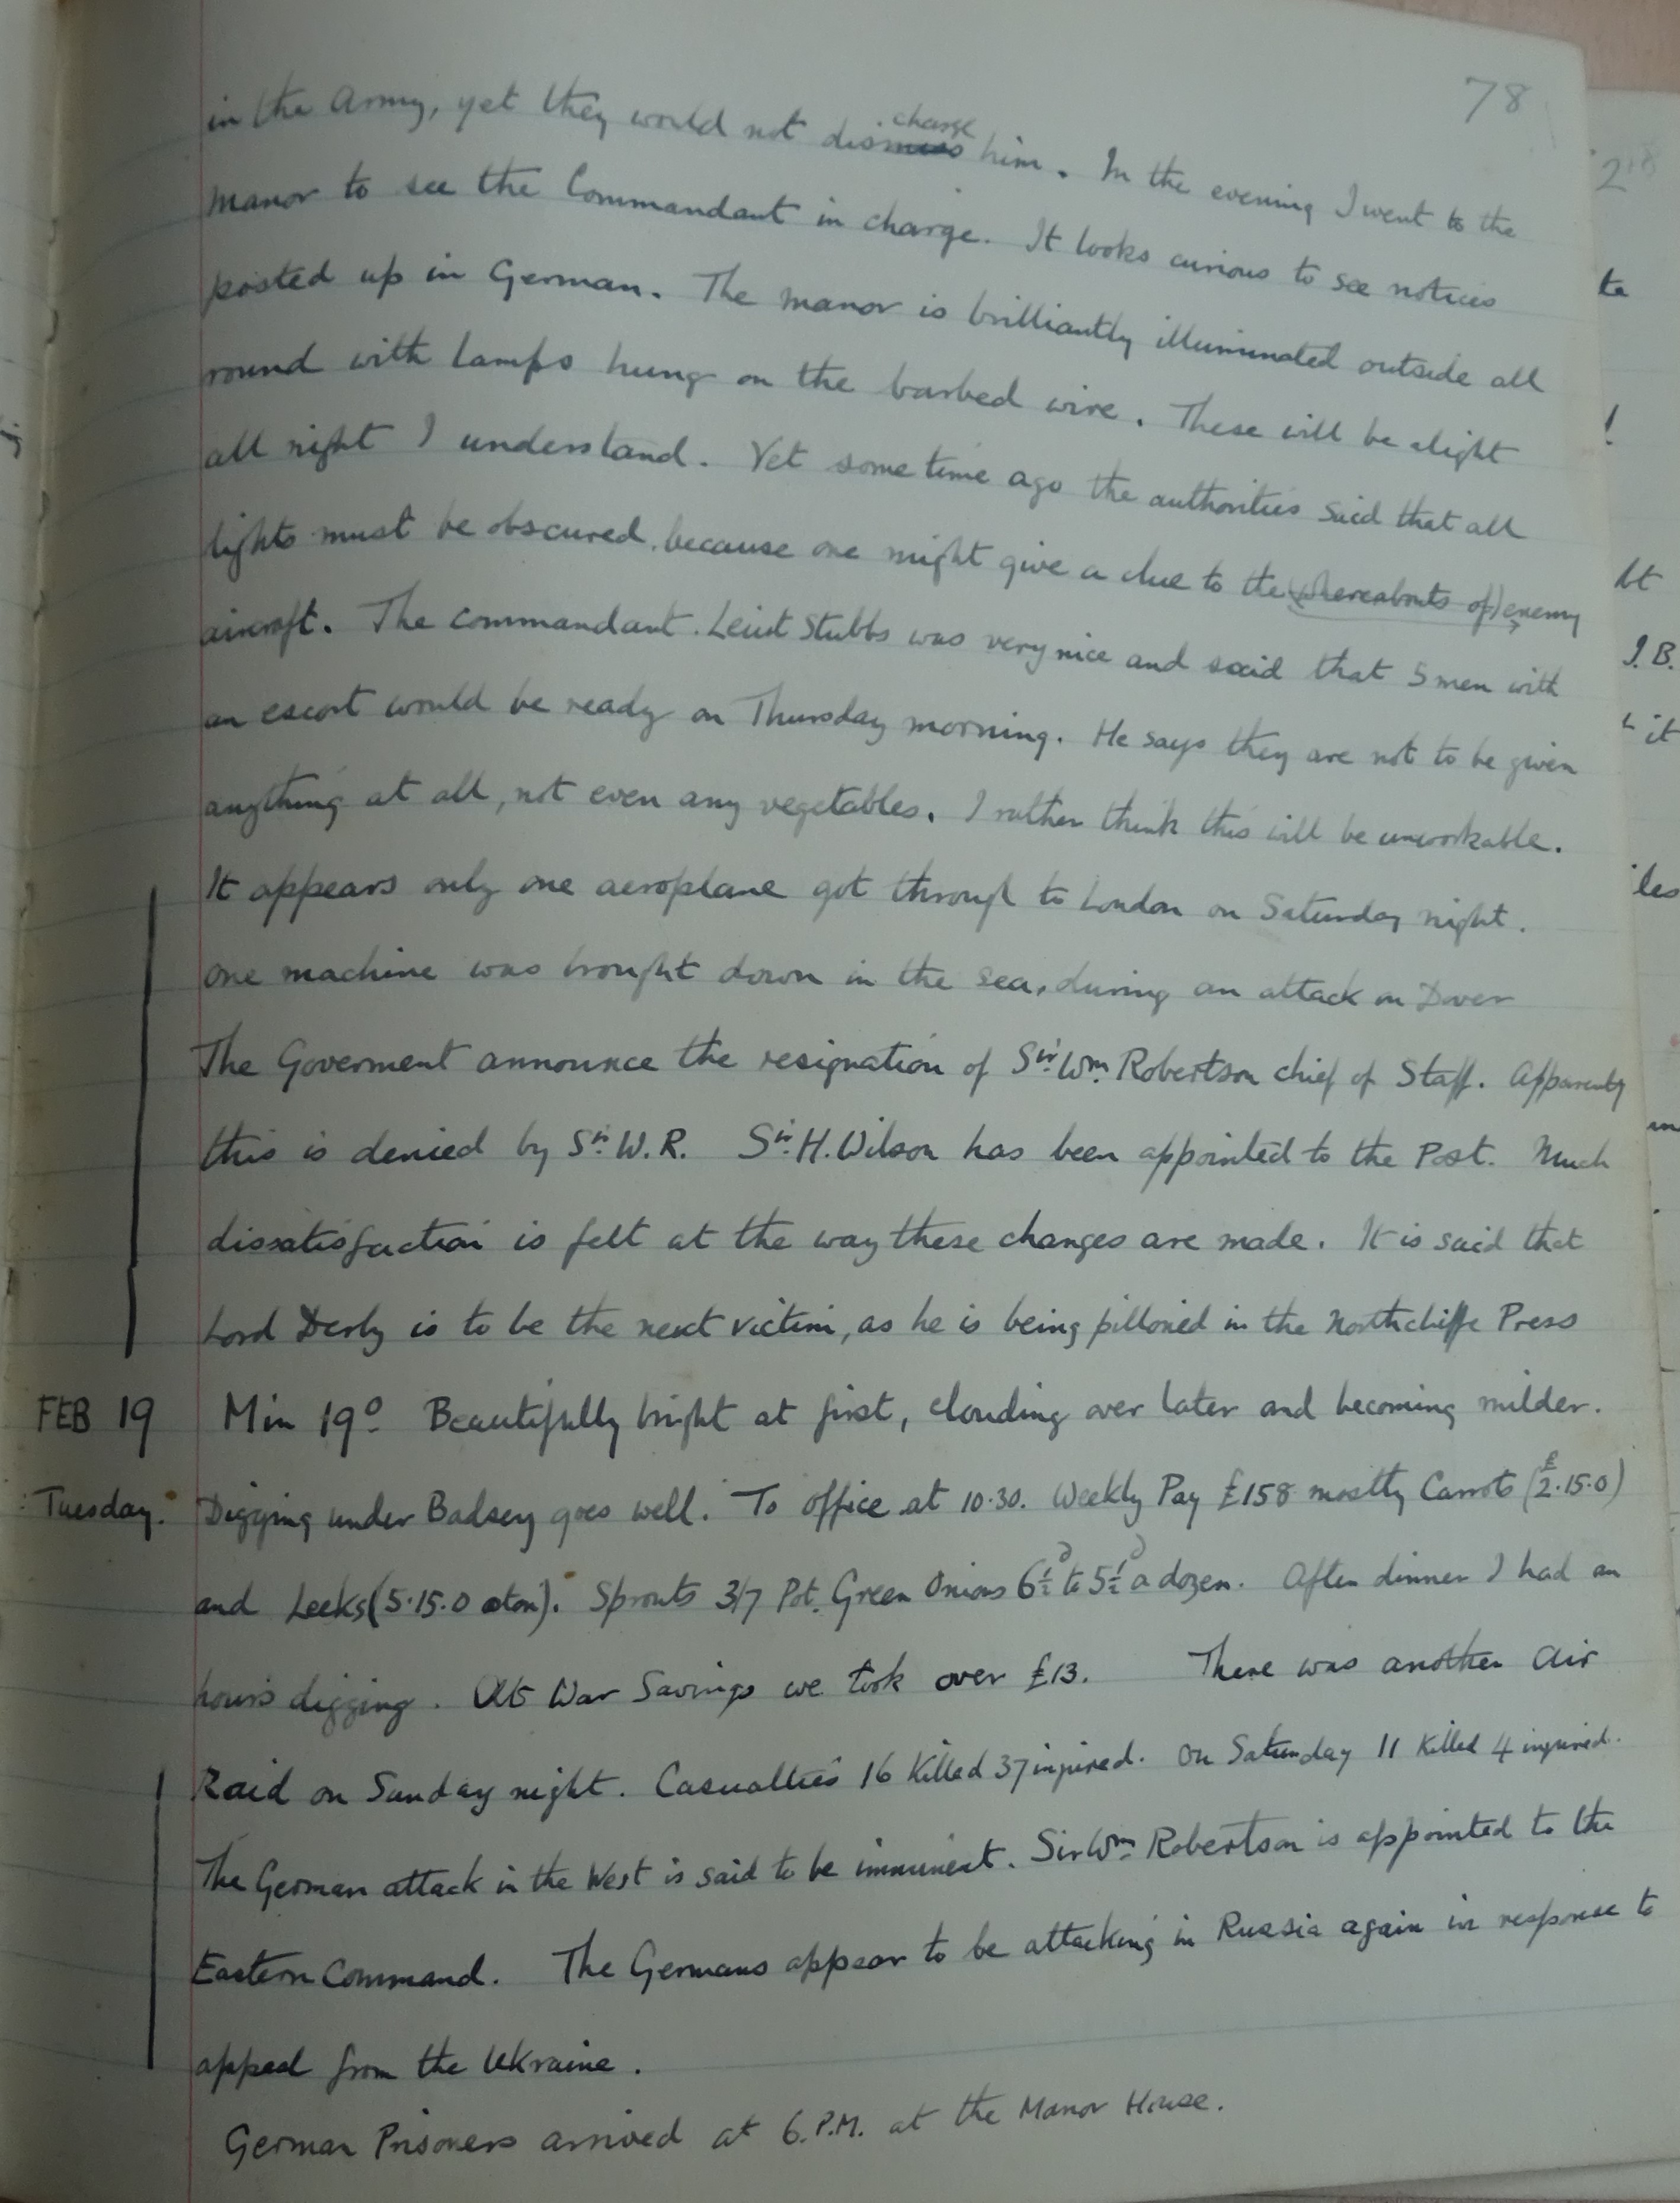 78
in the Army, yet they would not discharge him. In the evening I went to the
manor to see the Commandant in charge. It looks curious to see notices
posted up in German. The manor is brilliantly illuminated outside all
round with lamps hung on the barbed wire. These will be alight
all night I understand. Yet some time ago the authorities said that all
lights must be obscured, because one might give a clue to the (whereabouts of) enemy
aircraft. The commandant. Leiut Stubbs was very nice and said that 5 men with
an escort would be ready on Thursday morning. He says they are not to be given
anything at all, not even any vegetables. I rather think this will be unworkable.
It appears only one aeroplane got through to London on Saturday night.
One machine was brought down in the sea, during an attack on Dover
The Goverment announce the resignation of Sir Wm. Robertson chief of Staff. Apparently
this is denied by Sir W.R. Sir H. Wilson has been appointed to the Post. Much
dissatisfaction is felt at the way these changes are made. It is said that
Lord Derby is to be the next victim, as he is being pilloried in the Northcliffe Press
FEB 19 Min 19º Beautifully bright at first, clouding over later and becoming milder.
Tuesday. Digging under Badsey goes well. To office at 10.30. Weekly Pay £158 mostly Carrots (£2.15.0)
and Leeks (5.15.0 a ton). Sprouts 3/7 Pot. Green Onions 6½d to 5½d a dozen. After dinner I had an
hours digging. At War Savings we took over £13. There was another Air
Raid on Sunday night. Casualties 16 Killed 37 injured. On Saturday 11 Killed 4 injured.
The German attack in the West is said to be imminent. Sir Wm. Robertson is appointed to the
Eastern Command. The Germans appear to be attacking in Russia again in response to
appeal from the Ukraine.
German Prisoners arrived at 6.P.M. at the Manor House.